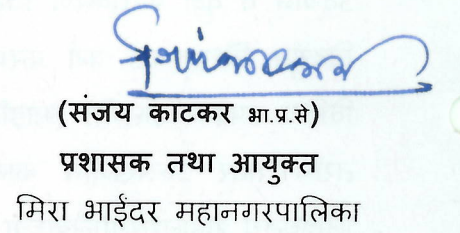 (संजय काटकर भा.प्र.से)
प्रशासक तथा आयुक्त
मिरा भाईंदर महानगरपालिका